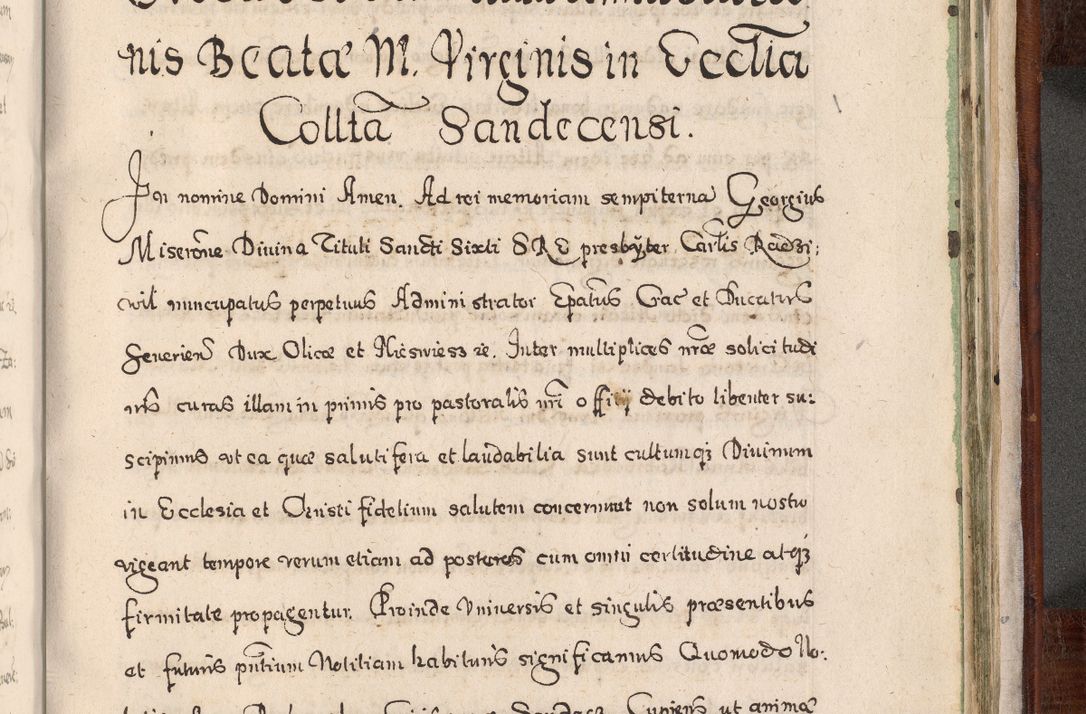 nis Beatæ M. Virginis in Ecclia
Collta Sandecensi.
In nomine Domini Amen. Ad rei memoriam sempiterna Georgius
Miserõne Divina Tituli Sancti Sixti S R E presbyter Carlis Radzi:
vil nuncupatus perpetuus Administrator Epatus Crac et Ducatus
Severien Dux Olicæ et Nieswiesz re. Inter multiplices nræ solicitudi
nis curas illam in primis pro pastoralis nri offitij debito libenter su:
scipimus ut ea quæ salutifera et laudabilia sunt cultumq3 Divinum
in Ecclesia et Christi fidelium salutem concernunt non solum nostro
vigeant tempore verum etiam ad posteros cum omni certitudine atq3
firmitate propagentur. Proinde Universis et singulis præsentibus
et futuris pntium Notitiam habituris significamus Quomodo No:
ut animæ